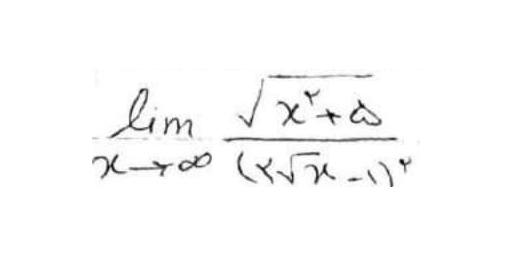 lim x→∞ √(x^۲+۵) / (۲√x - ۱)^۲